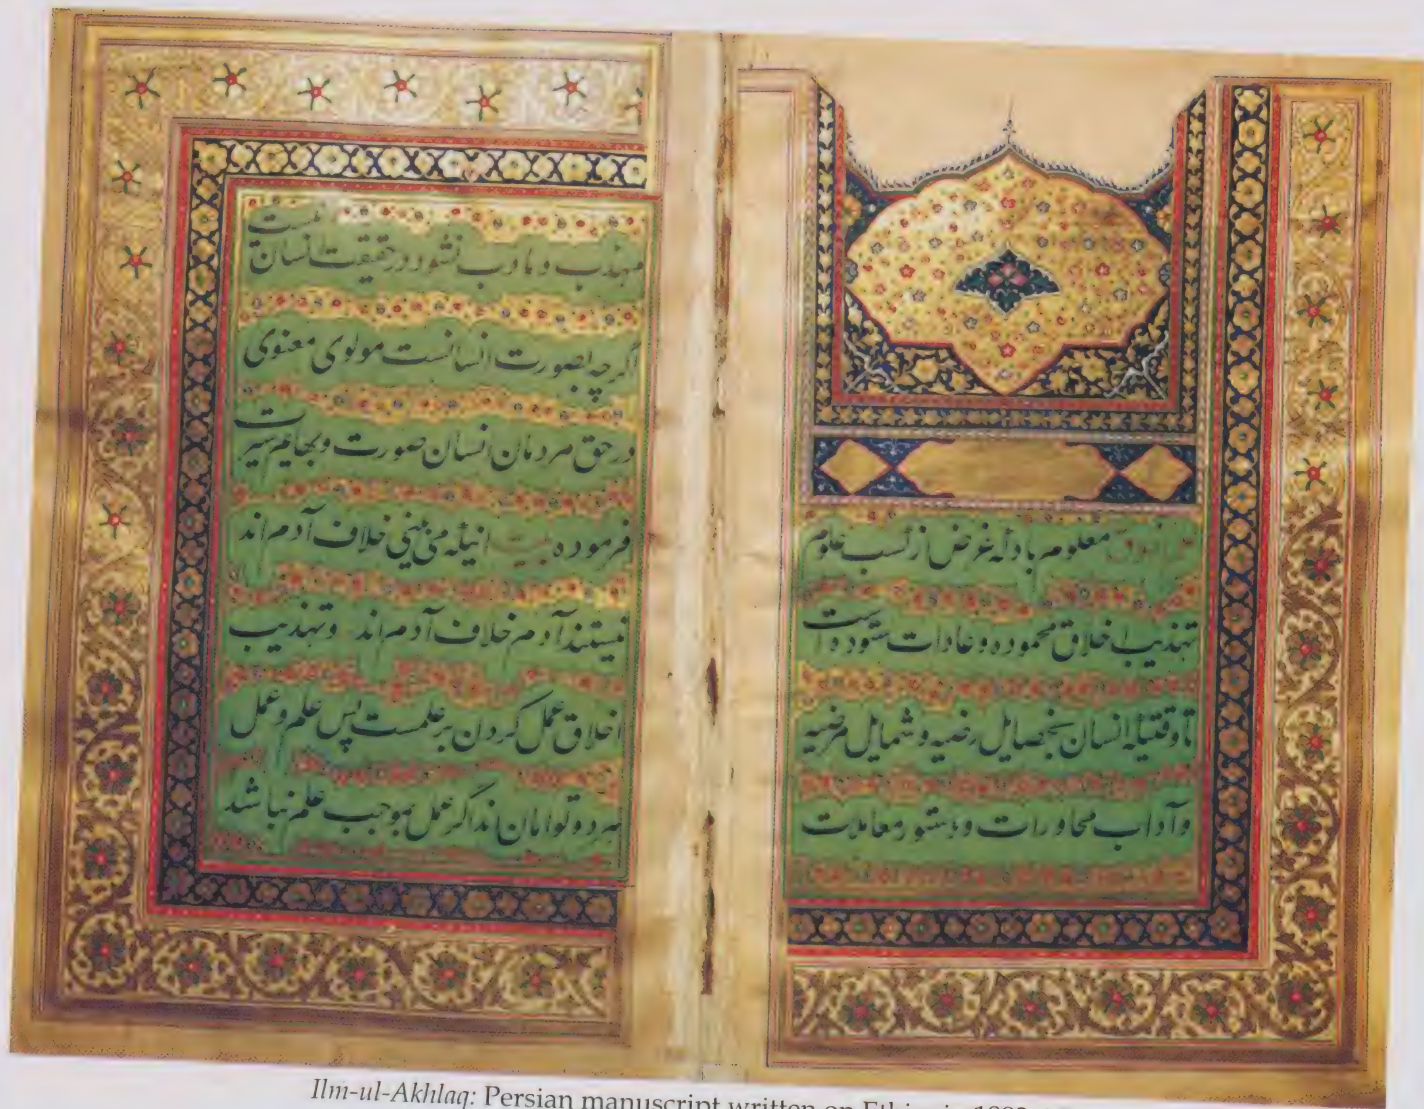 معلوم باد که غرض از کسب علوم
تهذیب اخلاق محموده و عادات ستوده است
تا وقتیکه انسان بخصایل رضیه و شمایل مرضیه
و آداب محاورات و دستور معاملات
مهذب و مادب نشود در حقیقت انسان نیست
اگرچه بصورت انسانست مولوی معنوی
در حق مردمان انسان صورت و بهایم سیرت
فرموده بیت اینکه می بینی خلاف آدم اند
نیستند آدم خلاف آدم اند و تهذیب
اخلاق عمل کردن بر علمست پس علم و عمل
هر دو توامان اند اگر عمل بموجب علم نباشد
Ilm-ul-Akhlaq: Persian manuscript written on